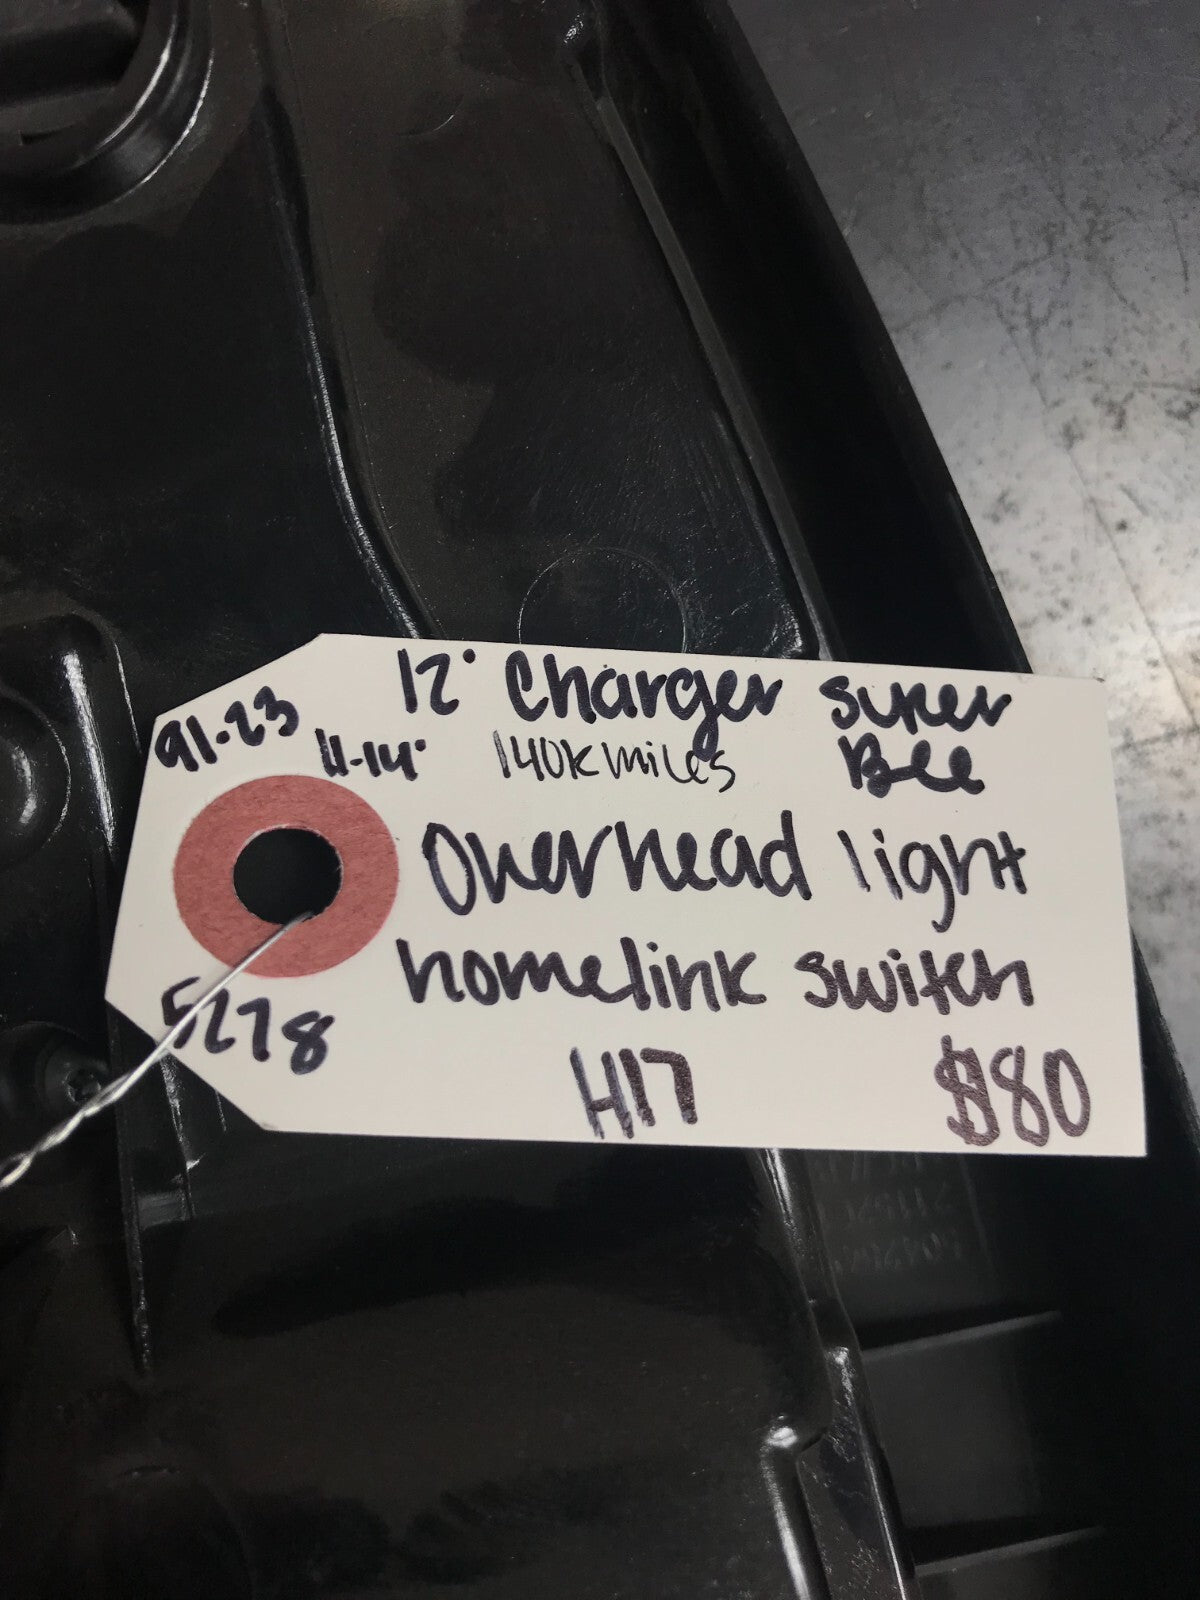 12' Charger Super
91-23 11-14' 140k miles Bee
Overhead light
homelink switch
5278
H17 $80